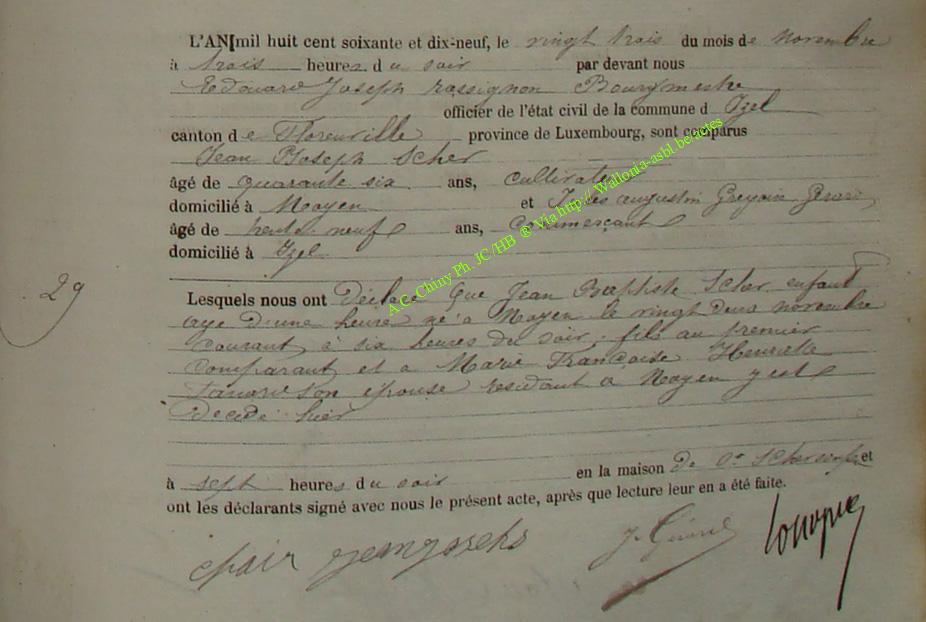 L'AN mil huit cent soixante et dix-neuf, le vingt trois du mois de novembre
à trois heures du soir par devant nous
Edouard Joseph rassignon Bourgmestre
officier de l'état civil de la commune d Izel
canton de Florenville province de Luxembourg, sont comparus
Jean Joseph Scher
âgé de quarante six ans, cultivateur
domicilié à Moyen et Jules augustin Gérard
âgé de trente neuf ans, commerçant
domicilié à Izel
29
Lesquels nous ont Déclaré que Jean Baptiste Scher enfant
age d'une heure né a Moyen le vingt deux novembre
courant à six heures du soir, fils au premier
comparant et a Marie Françoise Henriette
son épouse residant a Moyen y est
Décédé hier
à sept heures du soir en la maison de et
ont les déclarants signé avec nous le présent acte, après que lecture leur en a été faite.
J. Gérard
A.C. Chiny Ph. JC /HB ® Via http:// Wallonia-asbl.be/actes